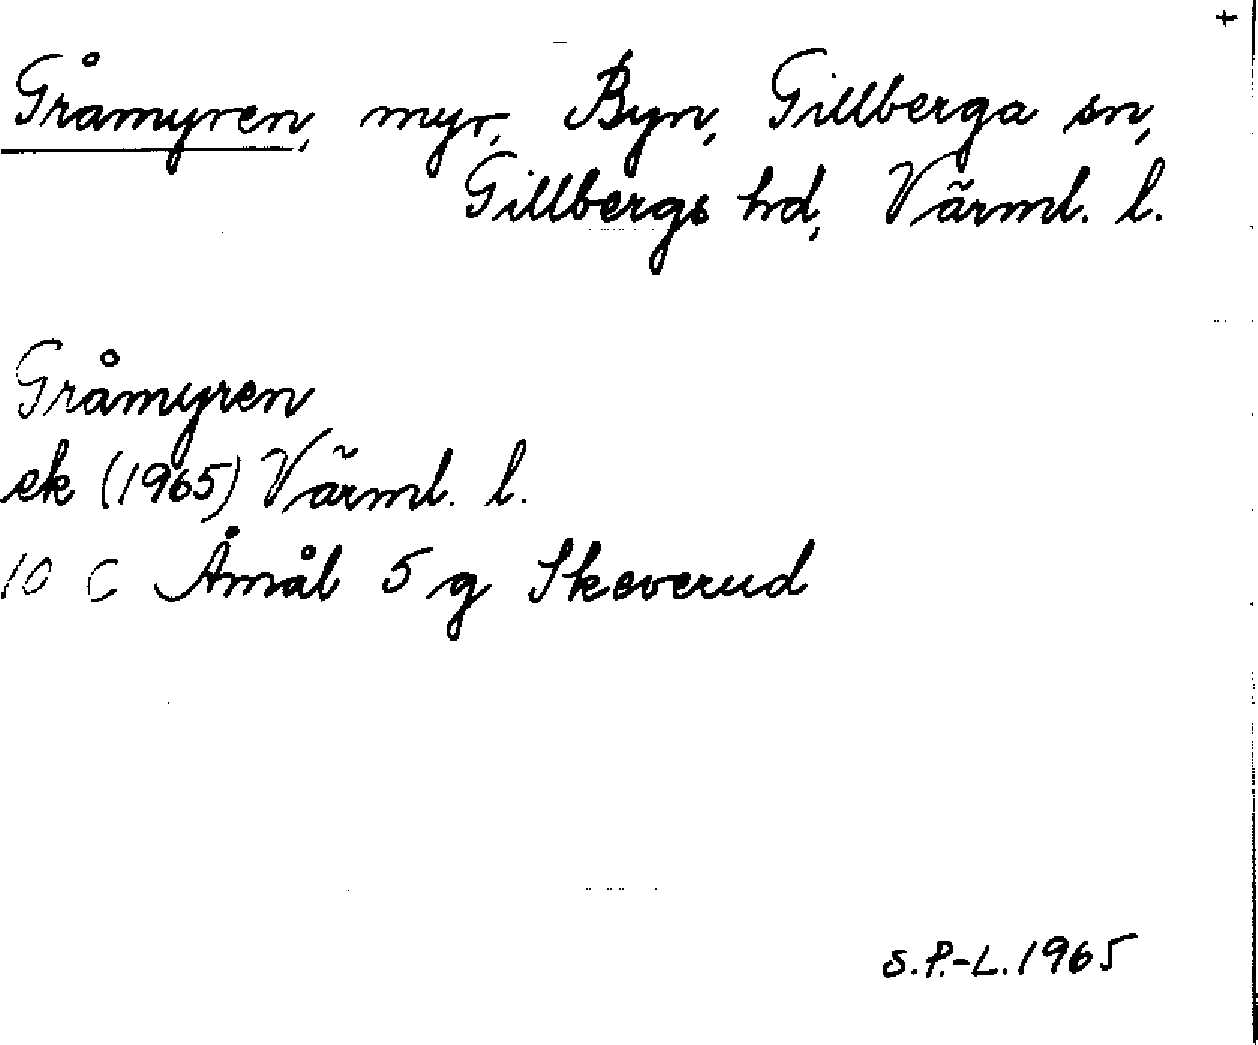 +
Gråmyren, myr, Byn, Gillberga sn,
Gillbergs hd, Värml. l.
Gråmyren
ek (1965) Värml. l.
10 C Åmål 5 g Skeverud
S.P.-L. 1965